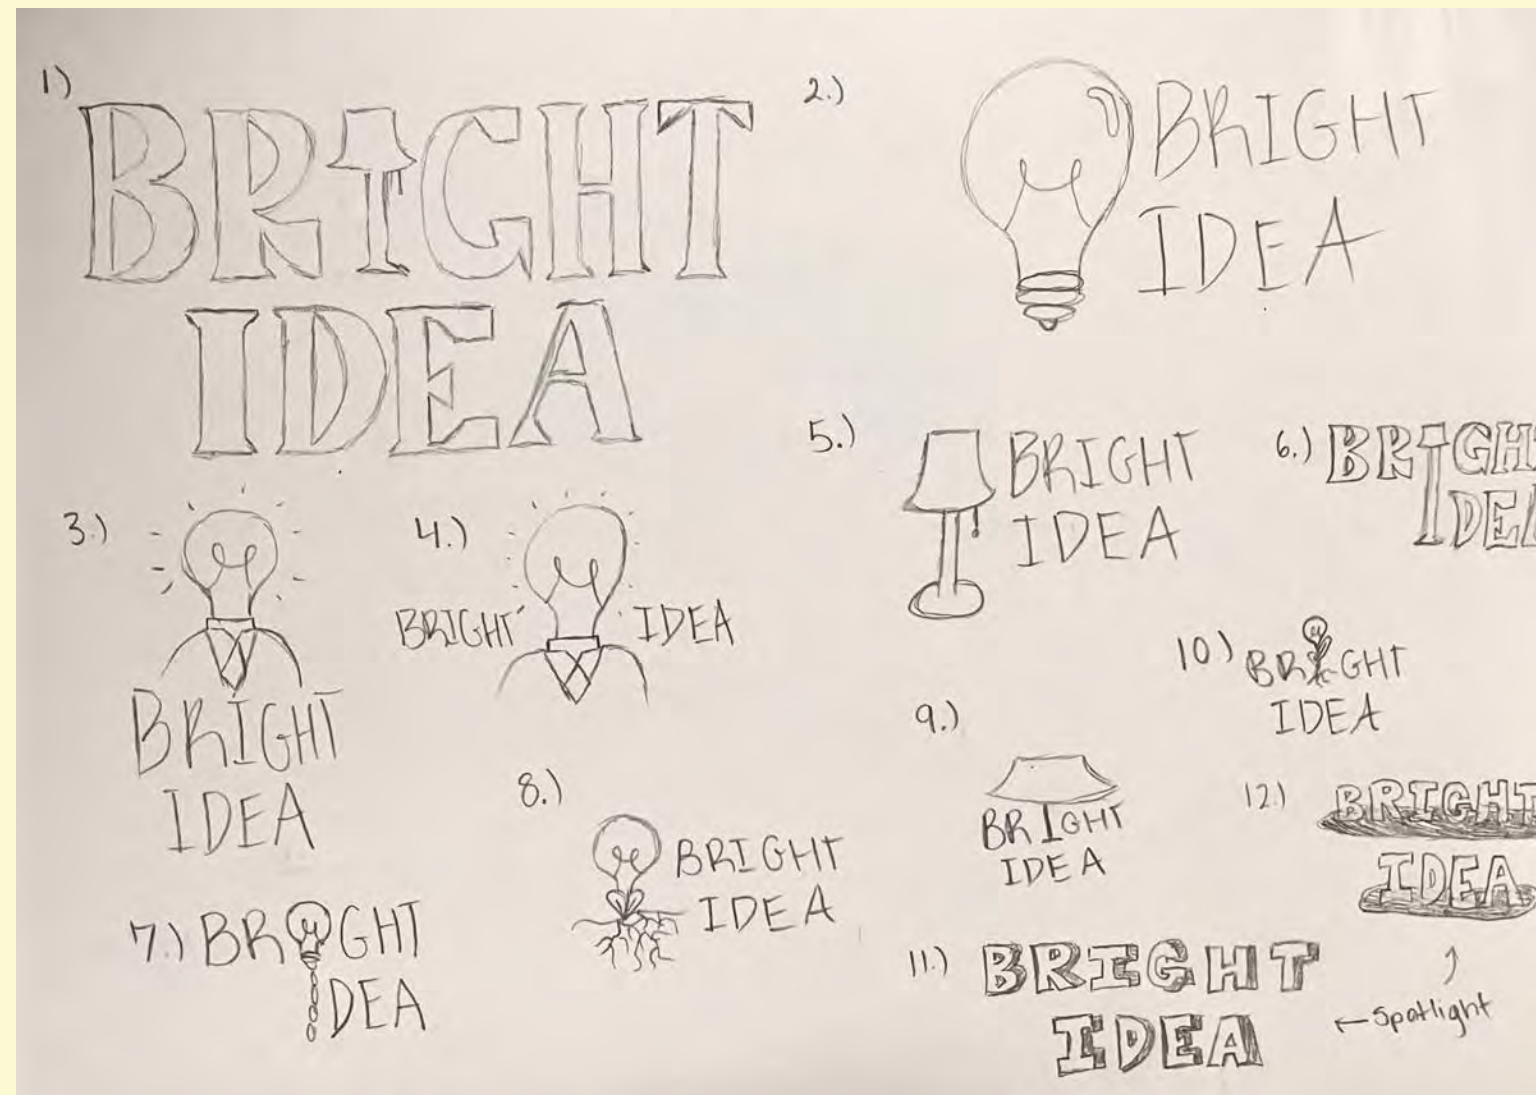 1)
BRIGHT
IDEA
2.)
BRIGHT
IDEA
3.)
BRIGHT
IDEA
4.)
BRIGHT IDEA
5.)
BRIGHT
IDEA
6.)
BRIGH
IDEA
7.) BRIGHT
IDEA
8.)
BRIGHT
IDEA
9.)
BRIGHT
IDEA
10) BRIGHT
IDEA
11.) BRIGHT
IDEA
12.) BRIGHT
IDEA
← Spotlight